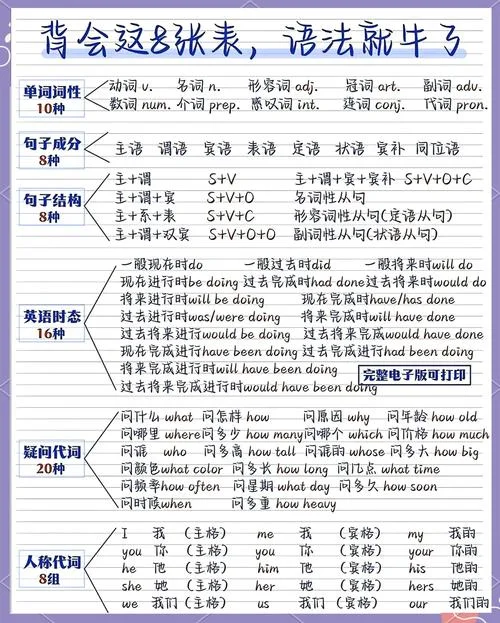 背会这8张表，语法就牛了
单词词性
10种
动词 v. 名词 n. 形容词 adj. 冠词 art. 副词 adv.
数词 num. 介词 prep. 感叹词 int. 连词 conj. 代词 pron.
句子成分
8种
主语 谓语 宾语 表语 定语 状语 宾补 同位语
句子结构
8种
主+谓 S+V 主+谓+宾+宾补 S+V+O+C
主+谓+宾 S+V+O 名词性从句
主+系+表 S+V+C 形容词性从句(定语从句)
主+谓+双宾 S+V+O+O 副词性从句(状语从句)
英语时态
16种
一般现在时do 一般过去时did 一般将来时will do
现在进行时be doing 过去完成时had done 过去将来时would do
将来进行时will be doing 现在完成时have/has done
过去进行时was/were doing 将来完成时will have done
过去将来进行would be doing 过去将来完成would have done
现在完成进行have been doing 过去完成进行had been doing
将来完成进行时will have been doing
过去将来完成进行时would have been doing
完整电子版可打印
疑问代词
20种
问什么 what 问怎样 how 问原因 why 问年龄 how old
问哪里 where 问多少 how many 问哪个 which 问价格 how much
问谁 who 问多高 how tall 问谁的 whose 问多大 how big
问颜色what color 问多长 how long 问几点 what time
问频率how often 问星期 what day 问多久 how soon
问时候when 问多重 how heavy
人称代词
8组
I 我 (主格) me 我 (宾格) my 我的
you 你 (主格) you 你 (宾格) your 你的
he 他 (主格) him 他 (宾格) his 他的
she 她 (主格) her 她 (宾格) hers 她的
we 我们 (主格) us 我们 (宾格) our 我们的